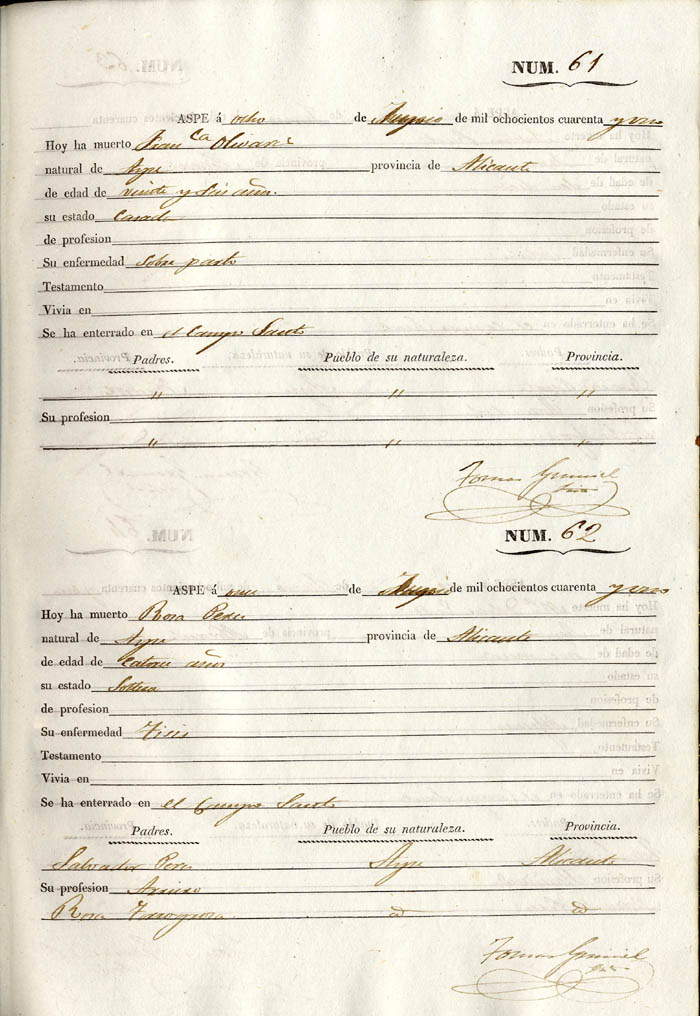 NUM. 61
ASPE á ocho de de mil ochocientos cuarenta y uno
Hoy ha muerto Fran.ca Olivares
natural de Aspe provincia de Alicante
de edad de veinte y seis años.
su estado Casada
de profesion
Su enfermedad Sobre parto
Testamento
Vivia en
Se ha enterrado en el Campo Santo
Padres. Pueblo de su naturaleza. Provincia.
" " "
Su profesion
" " "
Tomas
NUM. 62
ASPE á once de de mil ochocientos cuarenta y uno
Hoy ha muerto Rosa Peres
natural de Aspe provincia de Alicante
de edad de Catorce años
su estado Soltera
de profesion
Su enfermedad Tisis
Testamento
Vivia en
Se ha enterrado en el Campo Santo
Padres. Pueblo de su naturaleza. Provincia.
Salvador Peres Aspe Alicante
Su profesion Arriero
Rosa
Tomas